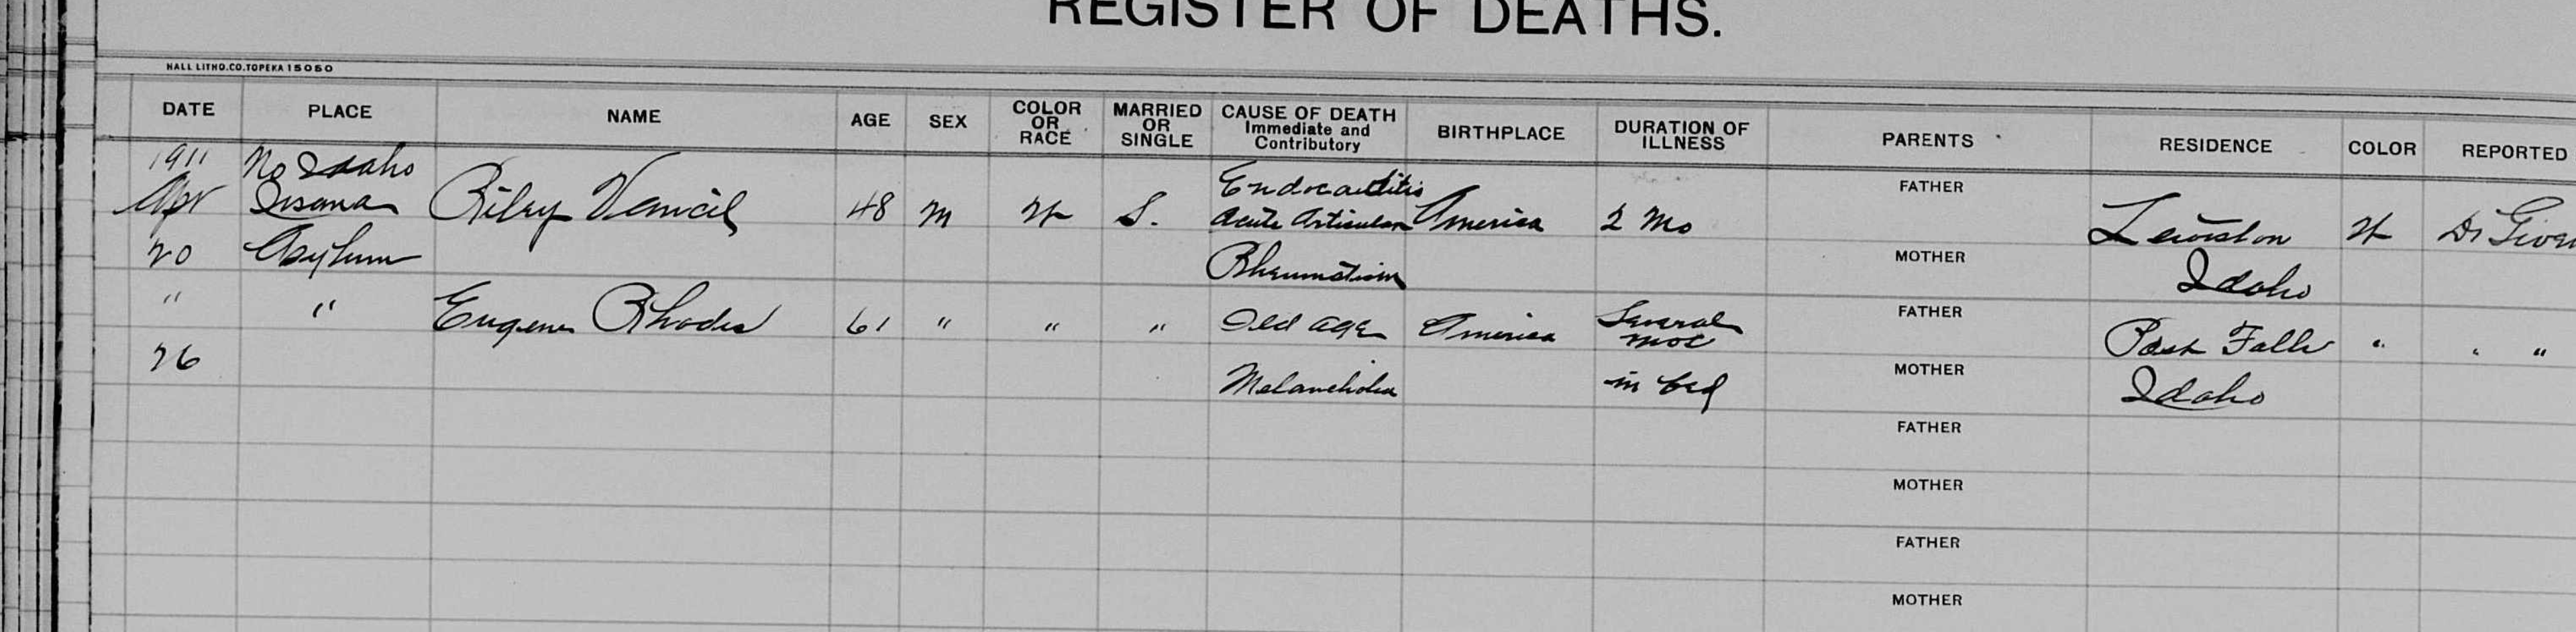 REGISTER OF DEATHS.
HALL LITHO.CO.TOPEKA 15050
DATE PLACE NAME AGE SEX COLOR OR RACE MARRIED OR SINGLE CAUSE OF DEATH Immediate and Contributory BIRTHPLACE DURATION OF ILLNESS PARENTS RESIDENCE COLOR REPORTED
1911 No Idaho Endocarditis FATHER
Apr Insane Riley 48 M W S. Acute Articular America 2 Mo Lewiston W Dr Given
20 Asylum Rheumatism MOTHER Idaho
" " Eugene Rhodes 61 " " " Old age America Several mos FATHER Post Falls " " "
26 Melancholia in bed MOTHER Idaho
FATHER
MOTHER
FATHER
MOTHER